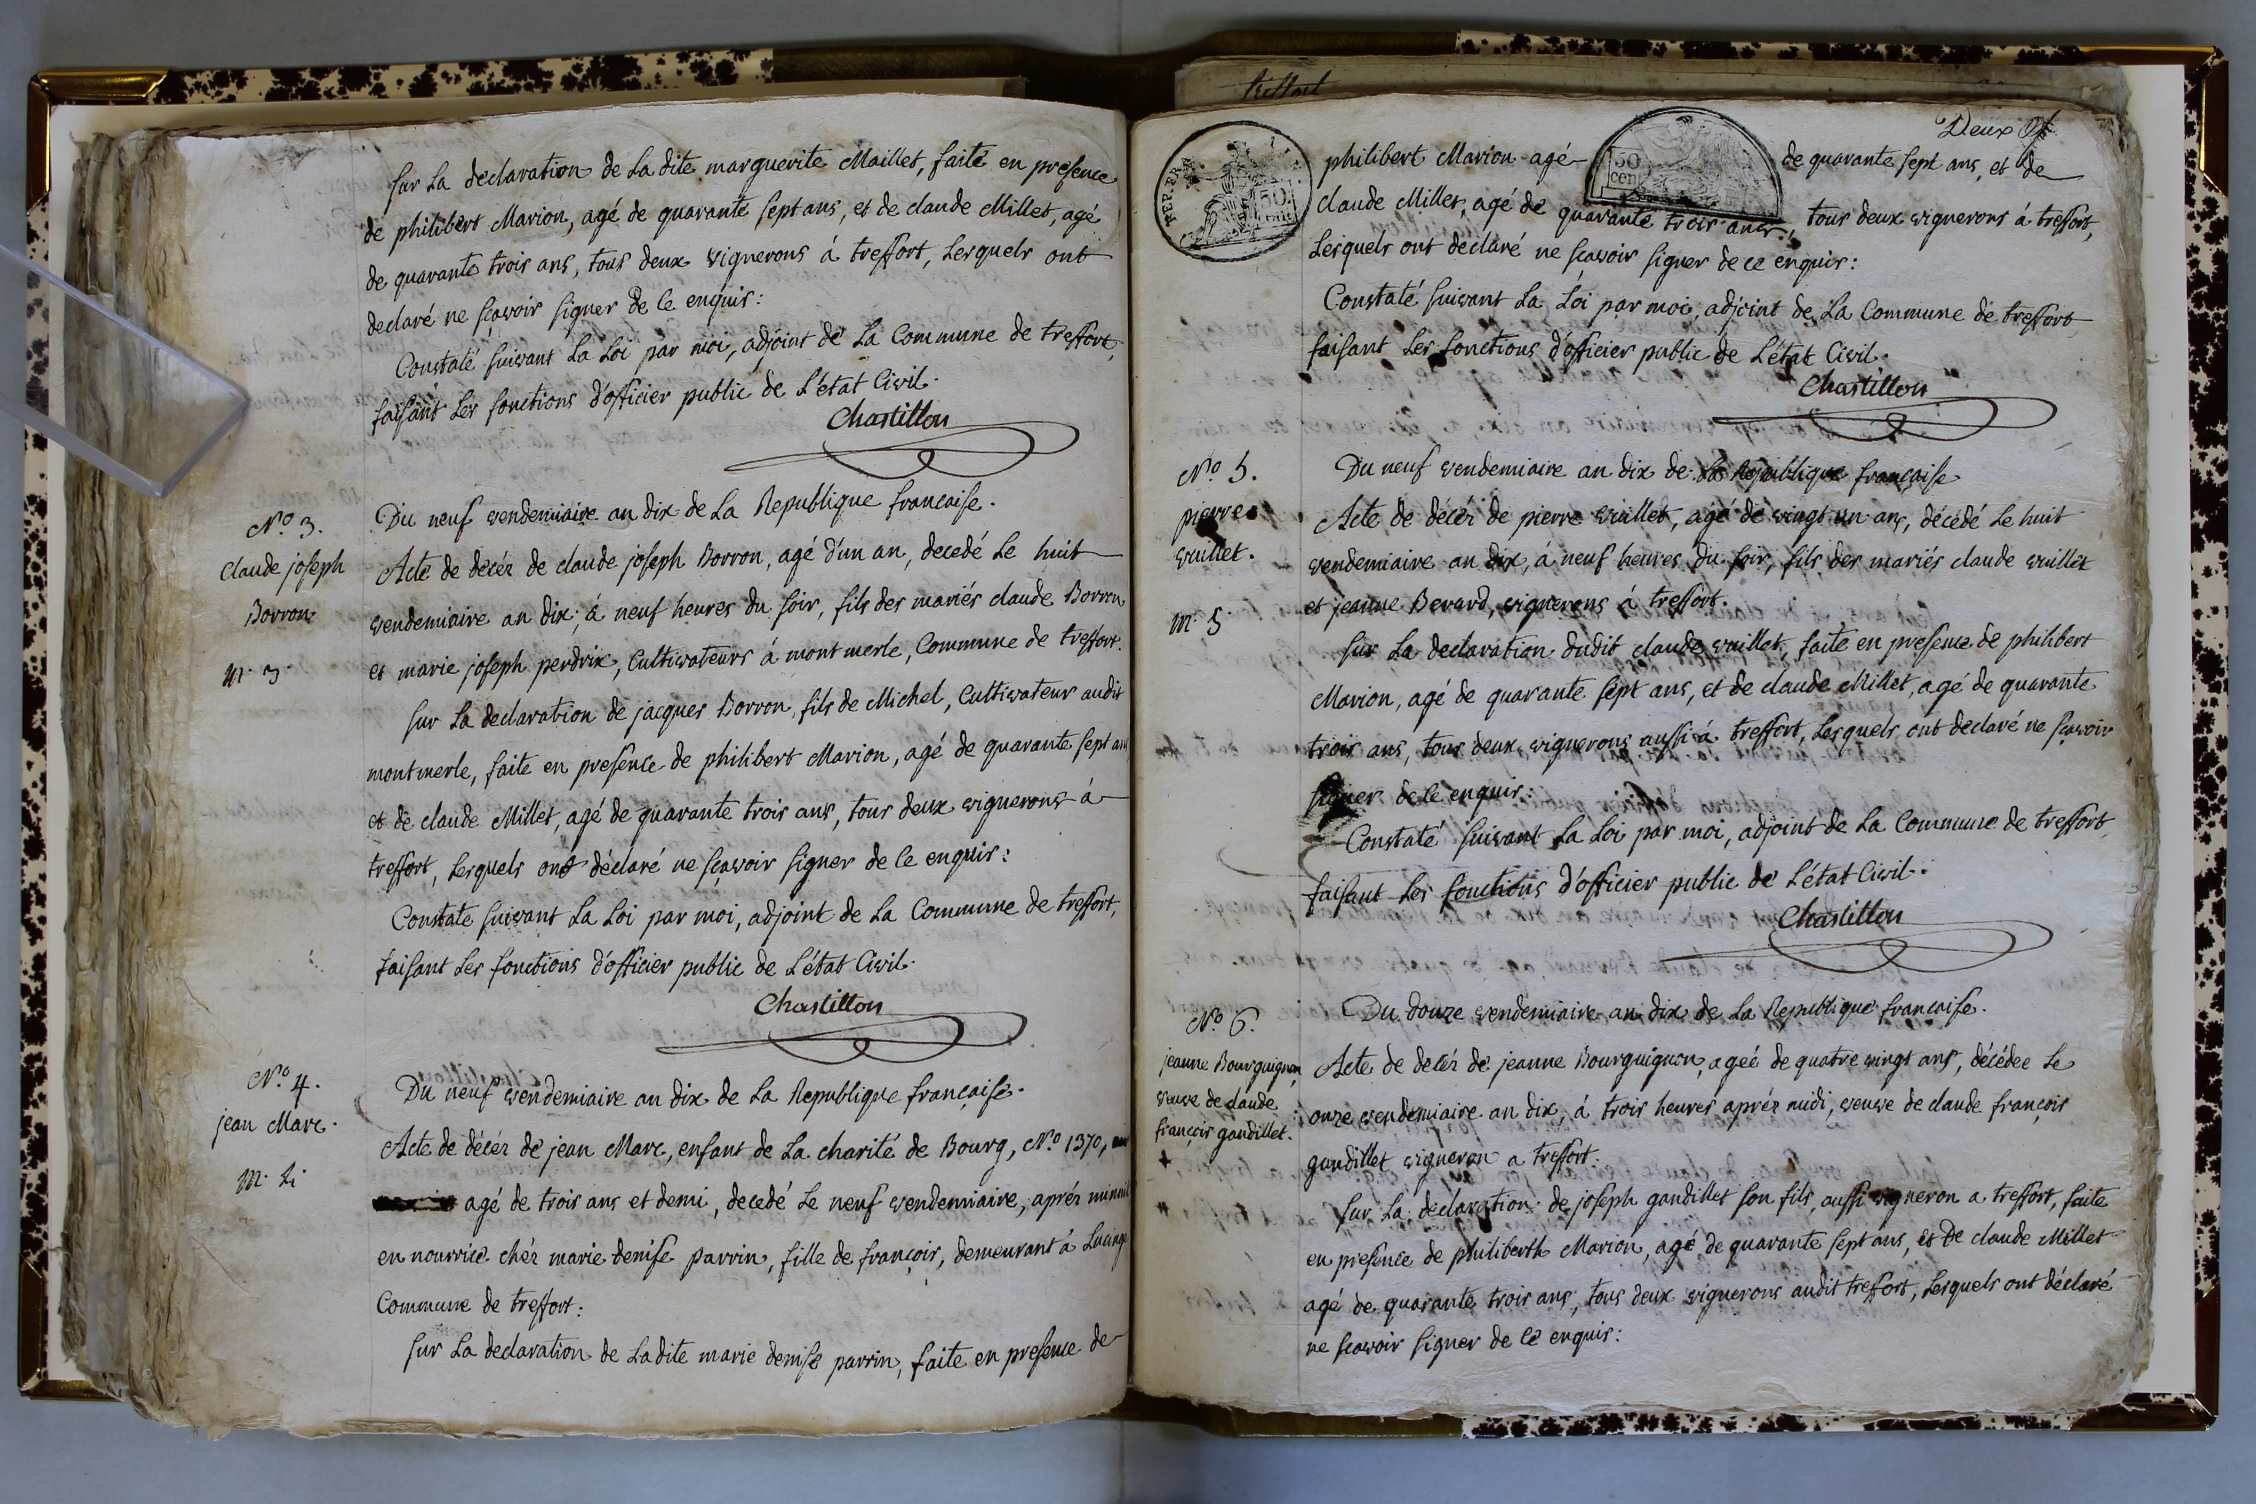 sur La declaration de La dite marguerite Maillet, faite en presence
de philibert Marion, agé de quarante sept ans, et de claude Millet, agé
de quarante trois ans, tous deux vignerons á treffort, Lesquels ont
declaré ne sçavoir signer de ce enquis:
Constaté suivant La Loi par moi, adjoint de La Commune de treffort,
faisant Les fonctions d'officier public de L'état Civil.
Chastillon
N.o 3.
claude joseph
Borron
m. 3.
Du neuf vendemiaire an dix de La Republique française.
Acte de décéz de claude joseph Borron, agé d'un an, decedé Le huit
vendemiaire an dix, á neuf heures du soir, fils des mariés claude Borron
et marie joseph perdrix, Cultivateurs á montmerle, Commune de treffort.
sur La declaration de jacques Borron, fils de Michel, Cultivateur audit
montmerle, faite en presence de philibert Marion, agé de quarante sept ans
et de claude Millet, agé de quarante trois ans, tous deux vignerons á
treffort, Lesquels ont déclaré ne sçavoir signer de ce enquis:
Constate suivant La Loi par moi, adjoint de La Commune de treffort,
faisant Les fonctions d'officier public de L'état Civil.
Chastillon
N.o 4.
jean Marc.
Du neuf vendemiaire an dix de La Republique française.
Acte de décéz de jean Marc, enfant de La charité de Bourg, N.o 1370,
agé de trois ans et demi, decedé Le neuf vendemiaire, apréz minuit
en nourrice chéz marie denise parrin, fille de françois, demeurant á
Commune de treffort:
sur La declaration de Ladite marie denise parrin, faite en presence de
Deux
REP. FRA
50 cent
50 cent
philibert Marion agé de quarante sept ans, et de
claude Millet, agé de quarante trois ans, tous deux vignerons á treffort,
Lesquels ont declaré ne sçavoir signer de ce enquis:
Constaté suivant La Loi par moi, adjoint de La Commune de treffort
faisant Les fonctions d'officier public de L'état Civil.
Chastillon
N.o 5.
pierre
vuillet.
m. 5
Du neuf vendemiaire an dix de La Republique française
Acte de décéz de pierre vuillet, agé de vingt un ans, décédé Le huit
vendemiaire an dix, á neuf heures du soir, fils des mariés claude vuillet
et jeanne Berard, vignerons á treffort.
sur La declaration dudit claude vuillet, faite en presence de philibert
Marion, agé de quarante sept ans, et de claude Millet, agé de quarante
trois ans, tous deux vignerons aussi á treffort, Lesquels ont declaré ne sçavoir
signer de ce enquis:
Constaté suivant La Loi par moi, adjoint de La Commune de treffort,
faisant Les fonctions d'officier public de L'état Civil.
Chastillon
N.o 6.
jeanne Bourguignon
veuve de claude
françois gandillet.
Du douze vendemiaire an dix de La Republique française.
Acte de decéz de jeanne Bourguignon, ageé de quatre vingt ans, décédeé Le
onze vendemiaire an dix, á trois heures apréz midi, veuve de claude françois
gandillet vigneron a treffort.
sur La declaration de joseph gandillet son fils, aussi vigneron a treffort, faite
en presence de philiberth Marion, agé de quarante sept ans, et De claude Millet
agé de quarante trois ans, tous deux vignerons audit treffort, Lesquels ont déclaré
ne sçavoir signer de ce enquis: